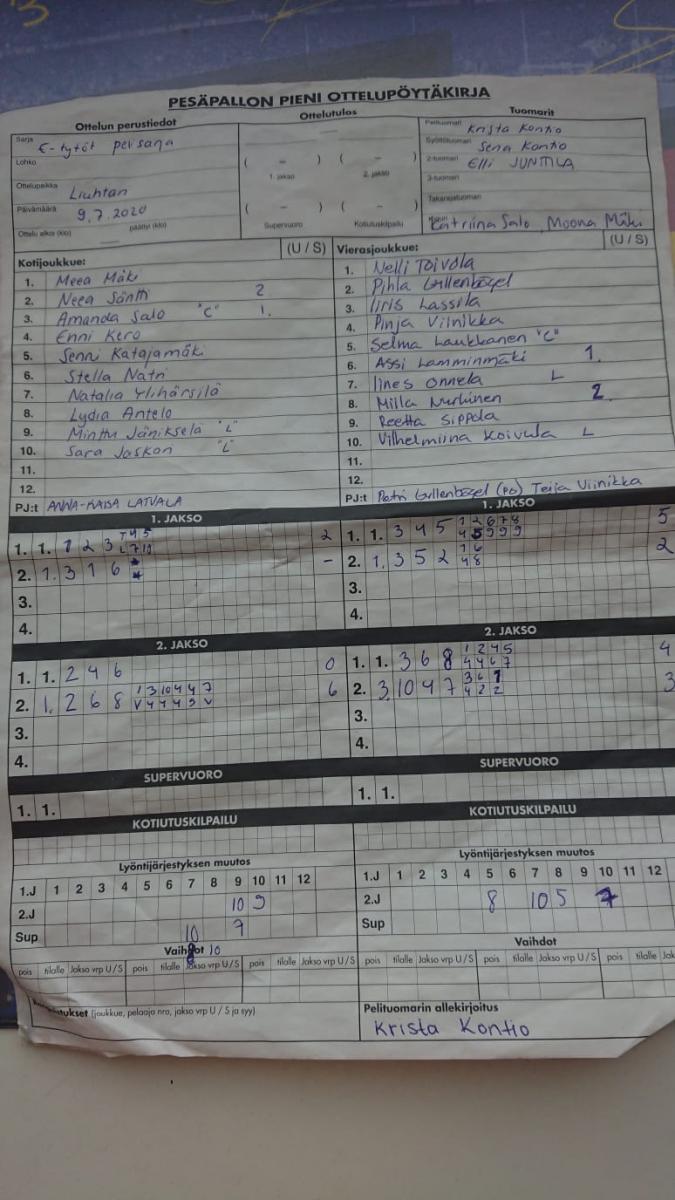 PESÄPALLON PIENI OTTELUPÖYTÄKIRJA
Ottelun perustiedot
Sarja E-tytöt perussarja
Lohko
Ottelupaikka Liuhtari
Päivämäärä 9.7.2020
Ottelu alkoi (klo) päättyi (klo)
Ottelutulos
( – ) ( – )
1. jakso 2. jakso
( – ) ( – )
Supervuoro Kotiutuskilpailu
Tuomarit
Pelituomari Krista Kontio
Syöttötuomari Sena Kontio
2-tuomari Elli JUNTTILA
3-tuomari
Takarajatuomari
Katriina Salo, Moona Mäki
Kotijoukkue: (U / S)
1. Meea Mäki
2. Neea Säntti 2
3. Amanda Salo "C" 1.
4. Enni Kero
5. Senni Katajamäki
6. Stella Natri
7. Natalia Ylihärsilä
8. Lydia Antelo
9. Minttu Jänikselä "L"
10. Sara Jaskari "L"
11.
12.
PJ:t ANNA-KAISA LATVALA
Vierasjoukkue: (U / S)
1. Nelli Toivola
2. Pihla Gyllenbögel
3. Iiris Lassila
4. Pinja Viinikka
5. Selma Laukkanen "C"
6. Assi Lamminmäki 1.
7. Iines Onnela L
8. Milla Nurkinen 2
9. Reetta Sippola
10. Vilhelmiina Koivula L
11.
12.
PJ:t Petri Gyllenbögel (PJ) Teija Viinikka
1. JAKSO
1. 1. 1 2 3 2
2. 1. 3 1 6 –
3.
4.
2. JAKSO
1. 1. 2 4 6 0
2. 1. 2 6 8 1 3 10 4 4 7 6
V 4 4 4 5 V
3.
4.
SUPERVUORO
1. 1.
KOTIUTUSKILPAILU
1. JAKSO
1. 1. 3 4 5 1 2 6 7 8 5
4 5 9 9 9
2. 1. 3 5 2 1 6 2
4 8
3.
4.
2. JAKSO
1. 1. 3 6 8 1 2 4 5 4
4 4 6 7
2. 3 10 4 7 3 6 1 3
4 2 2
3.
4.
SUPERVUORO
1. 1.
KOTIUTUSKILPAILU
Lyöntijärjestyksen muutos
1.J 1 2 3 4 5 6 7 8 9 10 11 12
2.J 10 9
Sup 10 7
Vaihdot 10
pois tilalle Jakso vrp U / S pois tilalle Jakso vrp U / S pois tilalle Jakso vrp U / S
(joukkue, pelaaja nro, jakso vrp U / S ja syy)
Lyöntijärjestyksen muutos
1.J 1 2 3 4 5 6 7 8 9 10 11 12
2.J 8 10 5 7
Sup
Vaihdot
pois tilalle Jakso vrp U / S pois tilalle Jakso vrp U / S pois tilalle
Pelituomarin allekirjoitus
Krista Kontio